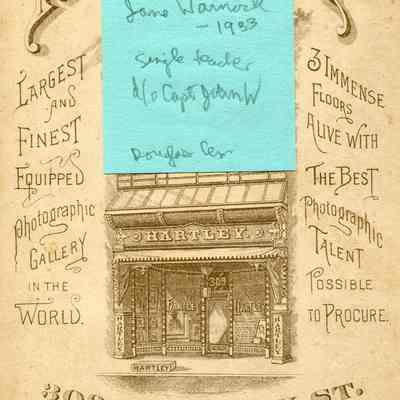 Jane Warnock
- 1933
Single teacher
d/o Capt John W
Douglas Cem
LARGEST
AND
FINEST
EQUIPPED
Photographic
GALLERY
IN THE
WORLD.
3 IMMENSE
FLOORS
ALIVE WITH
THE BEST
Photographic
TALENT
POSSIBLE
TO PROCURE.
HARTLEY.
309
HARTLEY
HARTLEY
HARTLEY
HARTLEY
HARTLEY
309
ST.